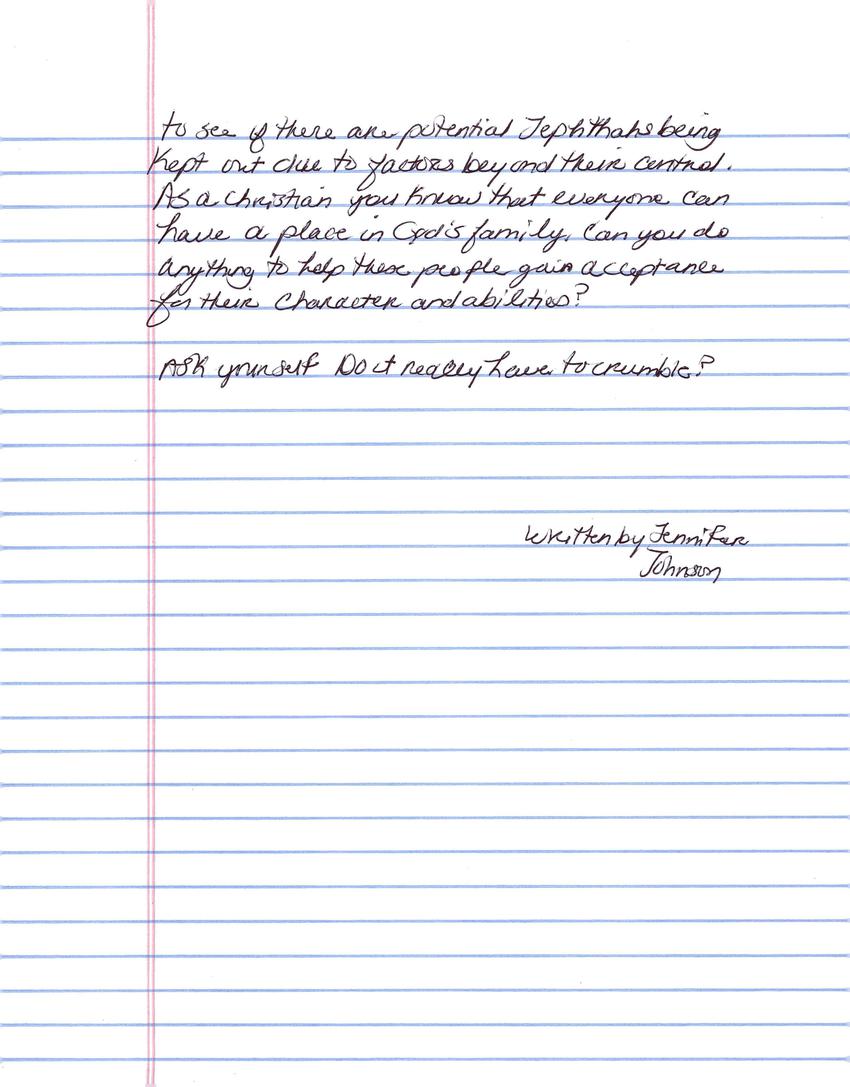 to see if there are potential Jephthahs being
kept out due to factors beyond their control.
As a Christian you know that everyone can
have a place in God's family. Can you do
anything to help these people gain acceptance
for their character and abilities?
Ask yourself Do it really have to crumble?
Written by Jennifer
Johnson